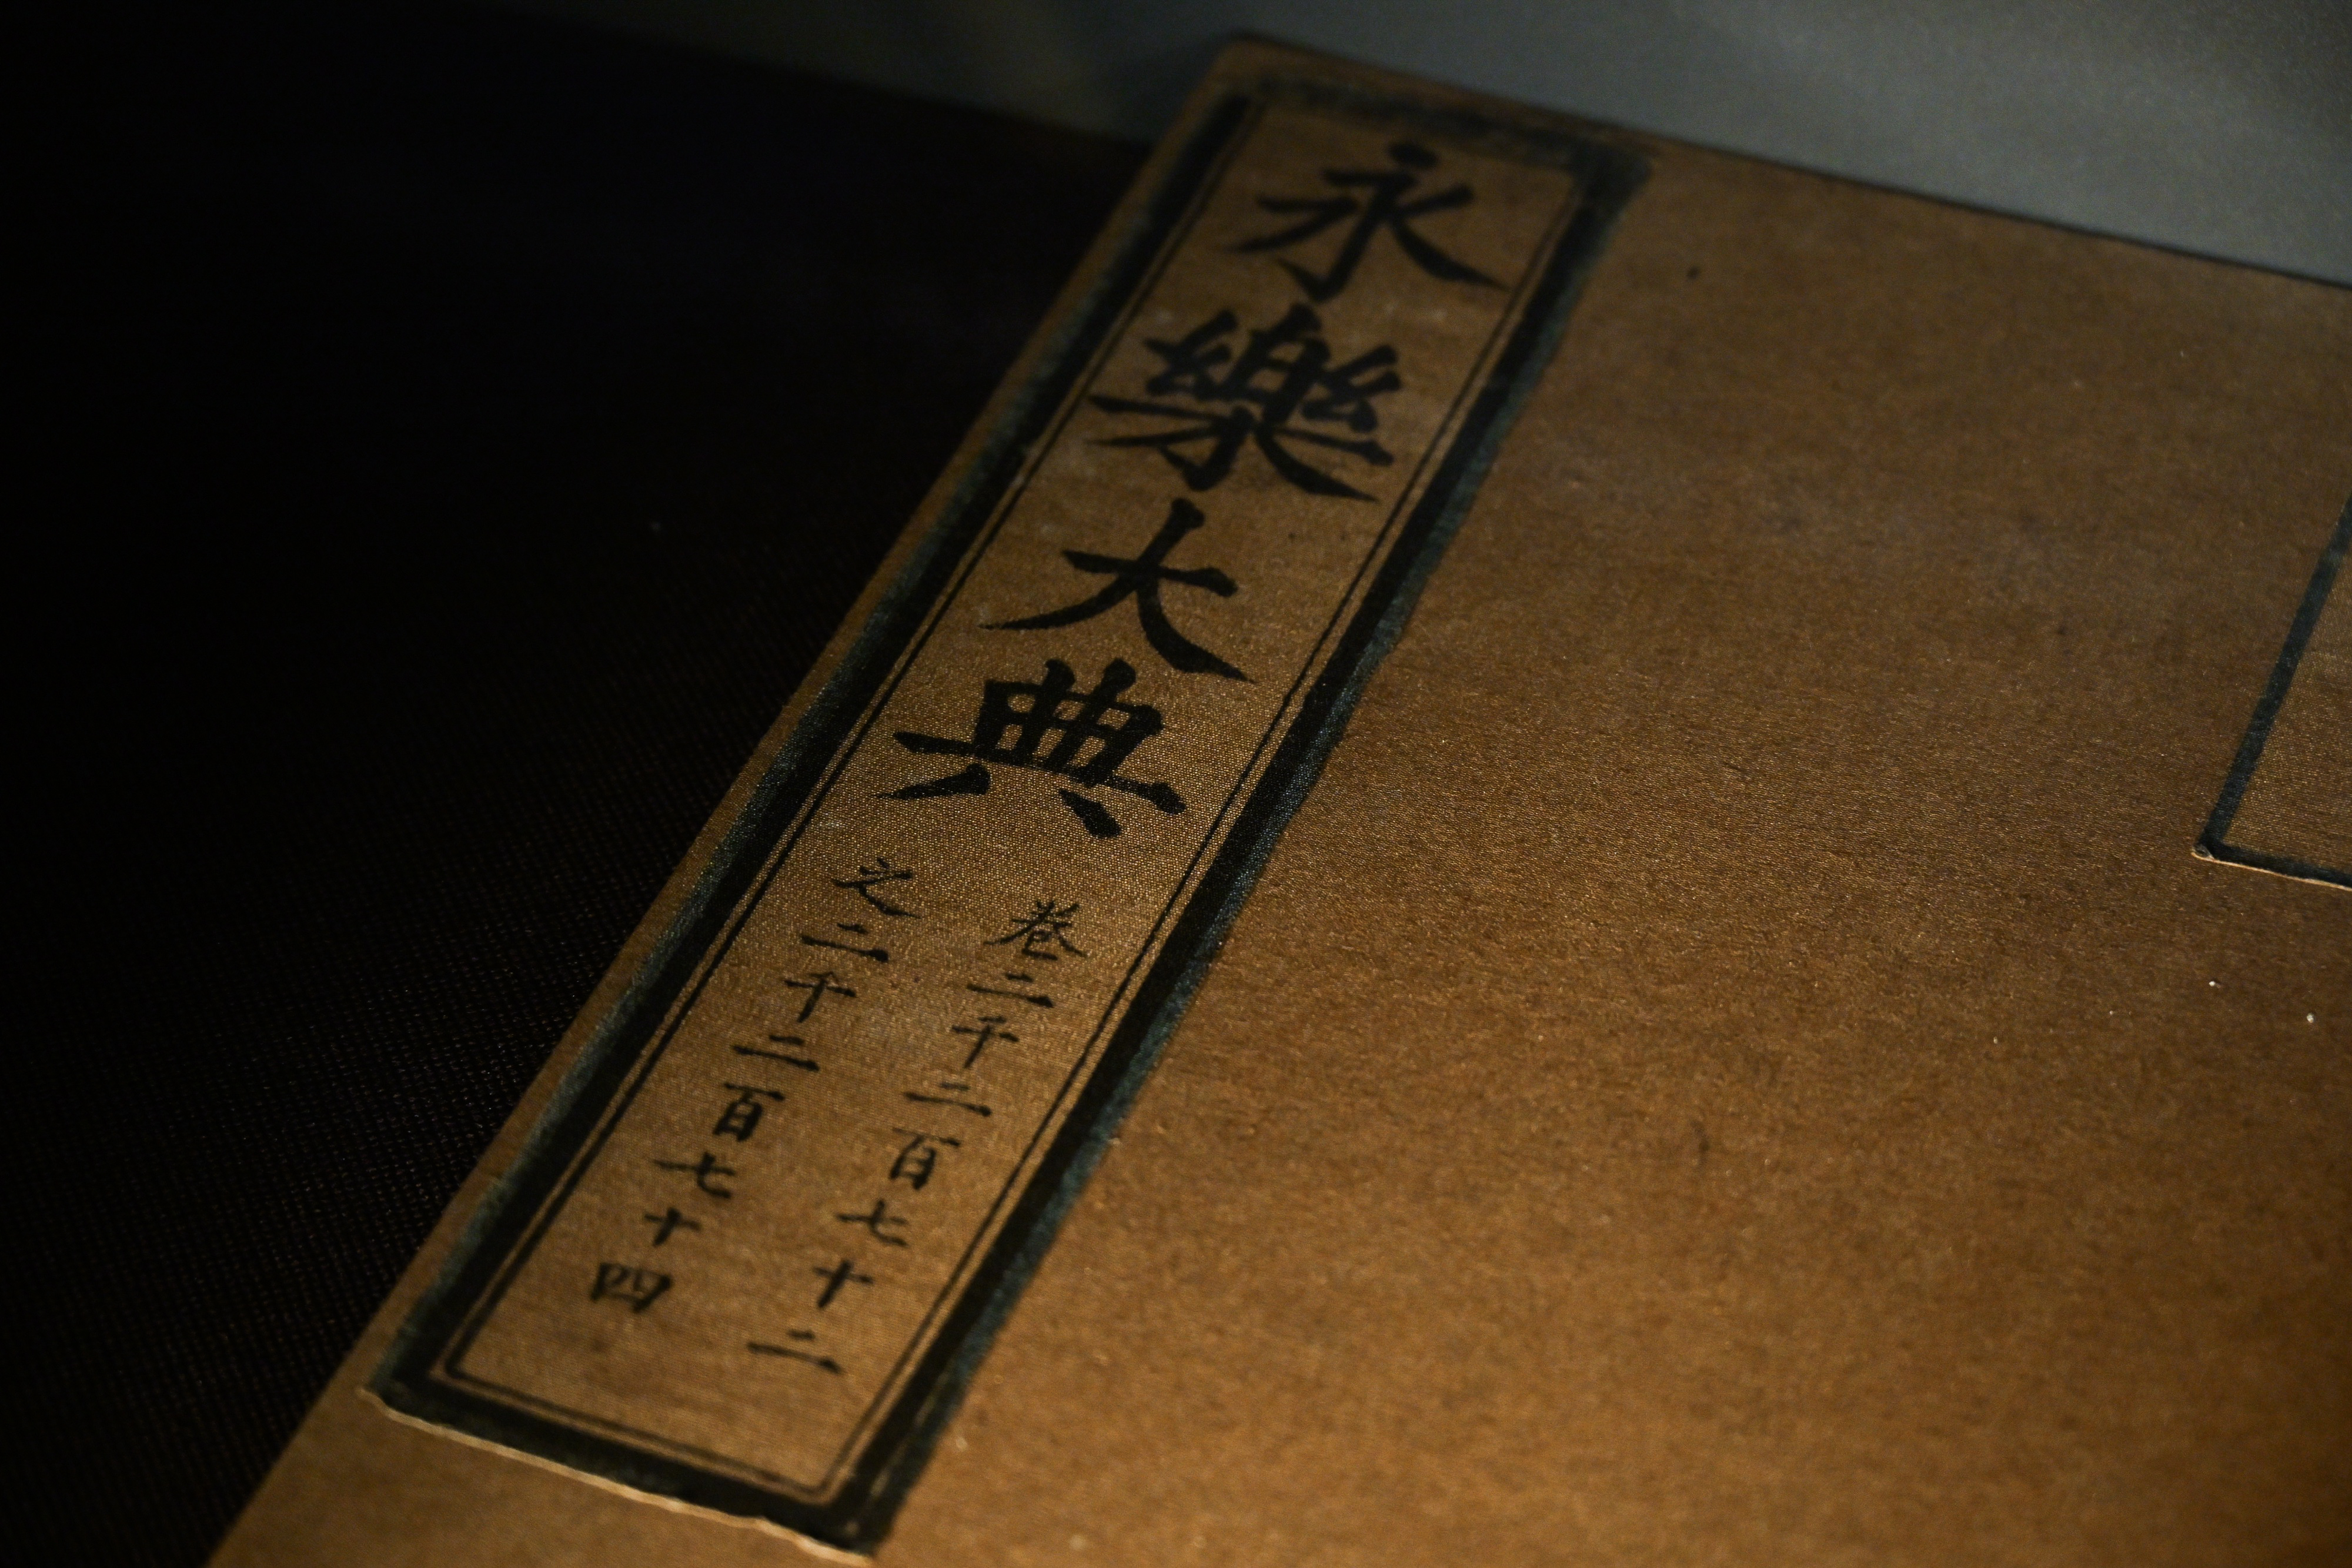 永樂大典
卷二千二百七十二
之二千二百七十四